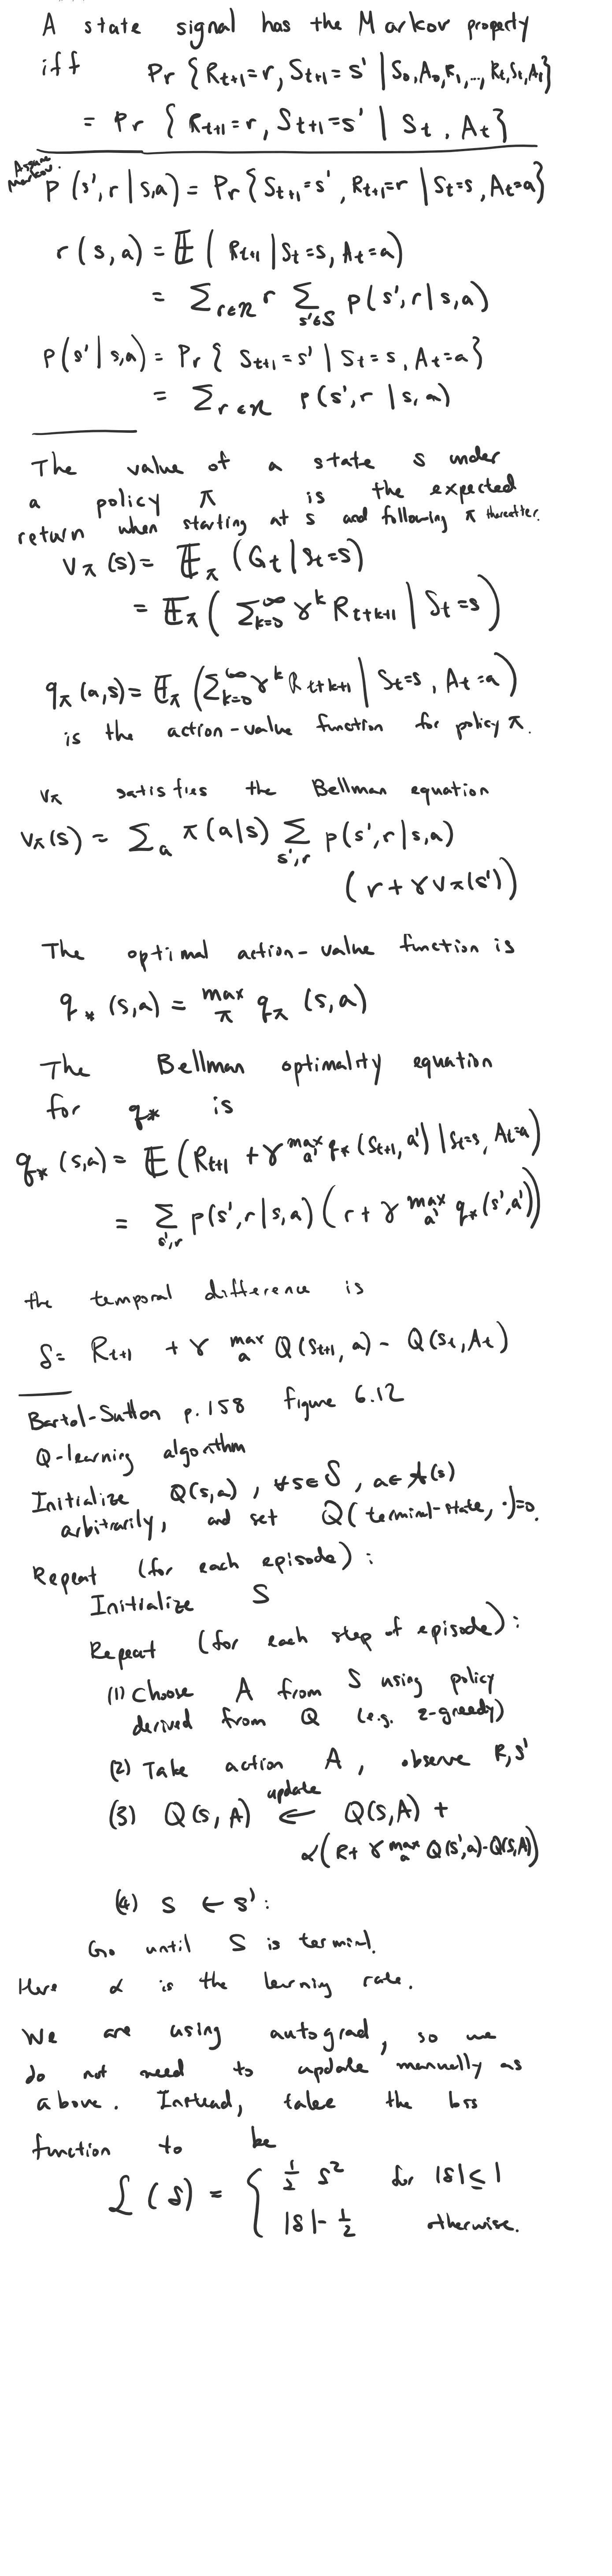 A state signal has the Markov property
iff Pr {R_{t+1}=r, S_{t+1}=s' | S_0,A_0,R_1,..., R_t,S_t,A_t}
= Pr {R_{t+1}=r, S_{t+1}=s' | S_t, A_t}
Assume
Markov.
p(s',r|s,a) = Pr{S_{t+1}=s', R_{t+1}=r | S_t=s, A_t=a}
r(s,a) = 𝔼(R_{t+1} | S_t=s, A_t=a)
= Σ_{r∈ℛ} r Σ_{s'∈S} p(s',r|s,a)
p(s'|s,a) = Pr{S_{t+1}=s' | S_t=s, A_t=a}
= Σ_{r∈ℛ} p(s',r|s,a)
The value of a state s under
a policy π is the expected
return when starting at s and following π thereafter.
v_π(s) = 𝔼_π(G_t | S_t=s)
= 𝔼_π(Σ_{k=0}^∞ γ^k R_{t+k+1} | S_t=s)
q_π(a,s) = 𝔼_π(Σ_{k=0}^∞ γ^k R_{t+k+1} | S_t=s, A_t=a)
is the action-value function for policy π.
v_π satisfies the Bellman equation
v_π(s) = Σ_a π(a|s) Σ_{s',r} p(s',r|s,a)
(r + γ v_π(s'))
The optimal action-value function is
q_*(s,a) = max_π q_π(s,a)
The Bellman optimality equation
for q_* is
q_*(s,a) = 𝔼(R_{t+1} + γ max_{a'} q_*(S_{t+1}, a') | S_t=s, A_t=a)
= Σ_{s',r} p(s',r|s,a)(r + γ max_{a'} q_*(s',a'))
the temporal difference is
δ = R_{t+1} + γ max_a Q(S_{t+1}, a) - Q(S_t, A_t)
Bartol-Sutton p.158 figure 6.12
Q-learning algorithm
Initialize Q(s,a), ∀s∈S, a∈A(s)
arbitrarily, and set Q(terminal-state, ·)=0.
Repeat (for each episode):
Initialize S
Repeat (for each step of episode):
(1) Choose A from S using policy
derived from Q (e.g. ε-greedy)
(2) Take action A, observe R,S'
update
(3) Q(S,A) ← Q(S,A) +
α(R + γ max_a Q(S',a) - Q(S,A))
(4) S ← S':
Go until S is terminl.
Here α is the learning rate.
We are using autograd, so we
do not need to update manually as
above. Instead, take the loss
function to be
ℒ(δ) = { ½ δ² for |δ| ≤ 1
|δ| - ½ otherwise.